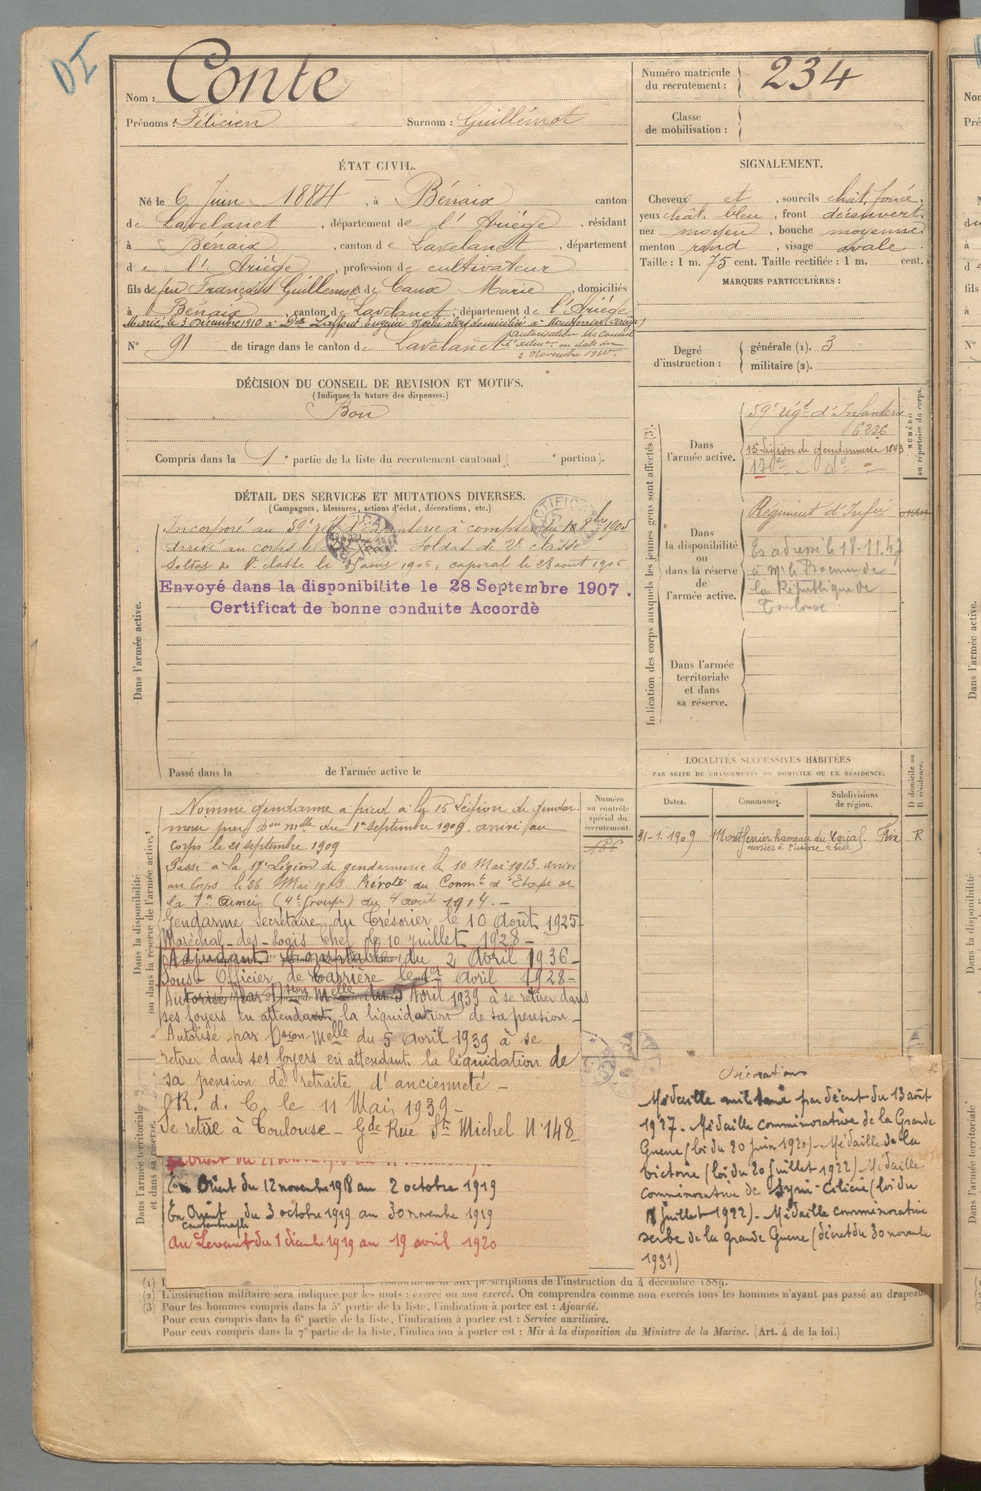 DI
Nom : Conte
Prénoms : Félicien Surnom : Guillemot
Numéro matricule du recrutement : 234
Classe de mobilisation :
ÉTAT CIVIL.
Né le 6 Juin 1884, à Bénaix canton
de Lavelanet, département de l'Ariège, résidant
à Bénaix, canton de Lavelanet, département
de l'Ariège, profession de cultivateur
fils de feu François Guillemot et de Caux Marie, domiciliés
à Bénaix, canton de Lavelanet, département de l'Ariège
Marié, le 3 Décembre 1910 à Dlle Laffont Eugénie domiciliée à Montferrier (Ariège)
autorisation du Conseil
en date du
2 Novembre 1910
N° 91 de tirage dans le canton de Lavelanet
SIGNALEMENT.
Cheveux et, sourcils chât. foncé,
yeux chât. bleu, front découvert,
nez moyen, bouche moyenne
menton rond, visage ovale
Taille : 1 m. 75 cent. Taille rectifiée : 1 m. cent.
MARQUES PARTICULIÈRES :
Degré d'instruction : générale (1). 3
militaire (2).
DÉCISION DU CONSEIL DE REVISION ET MOTIFS.
(Indiquer la nature des dispenses.)
Bon
Compris dans la 1e partie de la liste du recrutement cantonal ( portion).
Indication des corps auxquels les jeunes gens sont affectés (3).
NUMÉRO au répertoire du corps.
Dans l'armée active.
59e régt d'Infanterie
6236
15 Légion de gendarmerie 1843
17e - do -
Dans la disponibilité ou dans la réserve de l'armée active.
Régiment d'Infie
Ex adressé le 18-11-47
à Mr le Procureur de
la République de
Toulouse
Dans l'armée territoriale et dans sa réserve.
DÉTAIL DES SERVICES ET MUTATIONS DIVERSES.
(Campagnes, blessures, actions d'éclat, décorations, etc.)
Dans l'armée active.
Incorporé au 59e régt d'Infanterie à compter du 8bre 1905
Arrivé au corps le Soldat de 2e classe
Soldat de 1e classe le 1906, caporal le 28 août 1906
Envoyé dans la disponibilite le 28 Septembre 1907.
Certificat de bonne conduite Accordè
Passé dans la de l'armée active le
LOCALITÉS SUCCESSIVES HABITÉES
PAR SUITE DE CHANGEMENTS DE DOMICILE OU DE RÉSIDENCE.
Dates. Communes. Subdivisions de région. D domicile ou R résidence.
31-1-1909 Montferrier hameau du Foix R
Numéro au contrôle spécial du recrutement.
Dans la disponibilité ou dans la réserve de l'armée active.
Nommé gendarme à pied à la 15 Légion de gendar-
merie par Don mlle du 1er septembre 1909. arrivé au
corps le 21 septembre 1909
Passé à la 17e Légion de gendarmerie le 10 Mai 1913. arrivé
au Corps le 26 Mai 1913. Prévoté du Commt d'Etape de
la 1re Armée (4e Groupe) du 4 août 1914. -
Gendarme secrétaire du Trésorier le 10 Août 1925-
Maréchal-des-Logis Chef le 10 juillet 1928-
Adjudant comptable du 2 Avril 1936-
Sous Officier de Carrière le avril 1928-
Autorisé par Dcion Melle du 5 Avril 1939 à se retirer dans
ses foyers en attendant la liquidation de sa pension-
Autorisé par Dcion Melle du 5 Avril 1939 à se
retirer dans ses foyers en attendant la liquidation de
sa pension de retraite d'ancienneté -
R. d. C. le 11 Mai 1939-
Se retire à Toulouse - Gde Rue St Michel N 148_
Dans l'armée territoriale et dans sa réserve.
En Orient du 12 novembre 1918 au 2 octobre 1919
En Orient du 3 octobre 1919 au 30 novembre 1919
Constantinople
Au Levant du 1 décembre 1919 au 19 avril 1920
Décorations
Médaille militaire par décret du 13 août
1927 - Médaille commémorative de la Grande
Guerre (loi du 20 juin 1920) - Médaille de la
Victoire (loi du 20 juillet 1922) - Médaille
commémorative de Syrie-Cilicie (loi du
18 juillet 1922) - Médaille commémorative
serbe de la grande Guerre (décret du 30 novembre
1931)
(1) aux prescriptions de l'instruction du 4 décembre 1889.
(2) L'instruction militaire sera indiquée par les mots : exercé ou non exercé. On comprendra comme non exercés tous les hommes n'ayant pas passé au drapeau
(3) Pour les hommes compris dans la 5e partie de la liste, l'indication à porter est : Ajourné.
Pour ceux compris dans la 6e partie de la liste, l'indication à porter est : Service auxiliaire.
Pour ceux compris dans la 7e partie de la liste, l'indication à porter est : Mis à la disposition du Ministre de la Marine. (Art. 4 de la loi.)